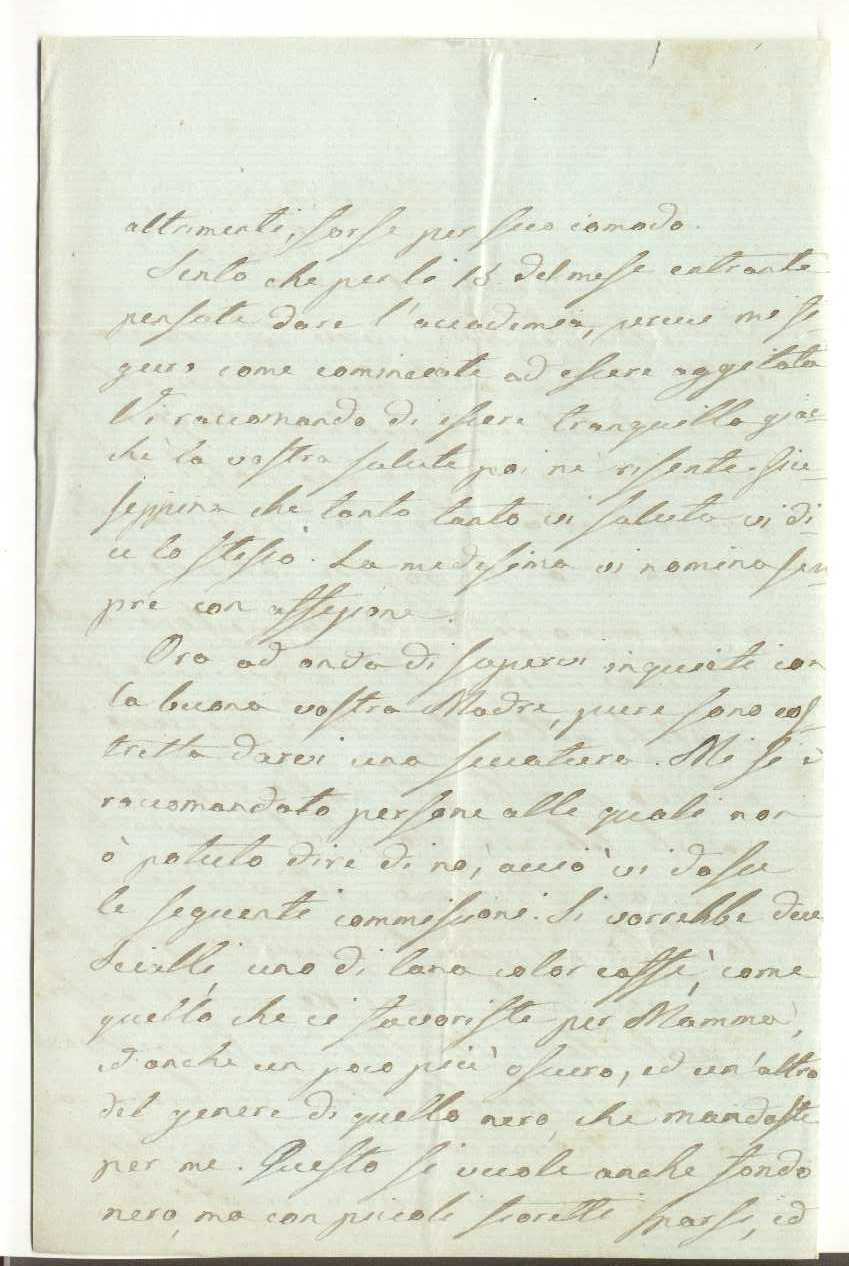 altrimenti, forse per suo comodo.
Sento che per li 15 del mese entrante
pensate dare l'accademia, percui mi fi-
guro come cominciate ad essere aggitata
Vi raccomando di essere tranquilla giac-
chè la vostra salute poi ne risente. Giu-
seppina che tanto tanto vi saluta vi di-
ce lo stesso. La medesima vi nomina sem-
pre con affezione.
Ora ad onta di sapervi inquieti con
la buona vostra Madre, pure sono cos-
tretta darvi una seccatura. Mi si è
raccomandato persone alle quali non
ò potuto dire di no, acciò vi dassi
le seguenti commissioni. Si vorrebbe due
Scialli, uno di lana color caffè, come
quello che ci favoriste per Mammà,
ed anche un poco più oscuro, ed un'altro
del genere di quello nero, che mandaste
per me. Questo si vuole anche fondo
nero, ma con piccoli fioretti sparsi, ed